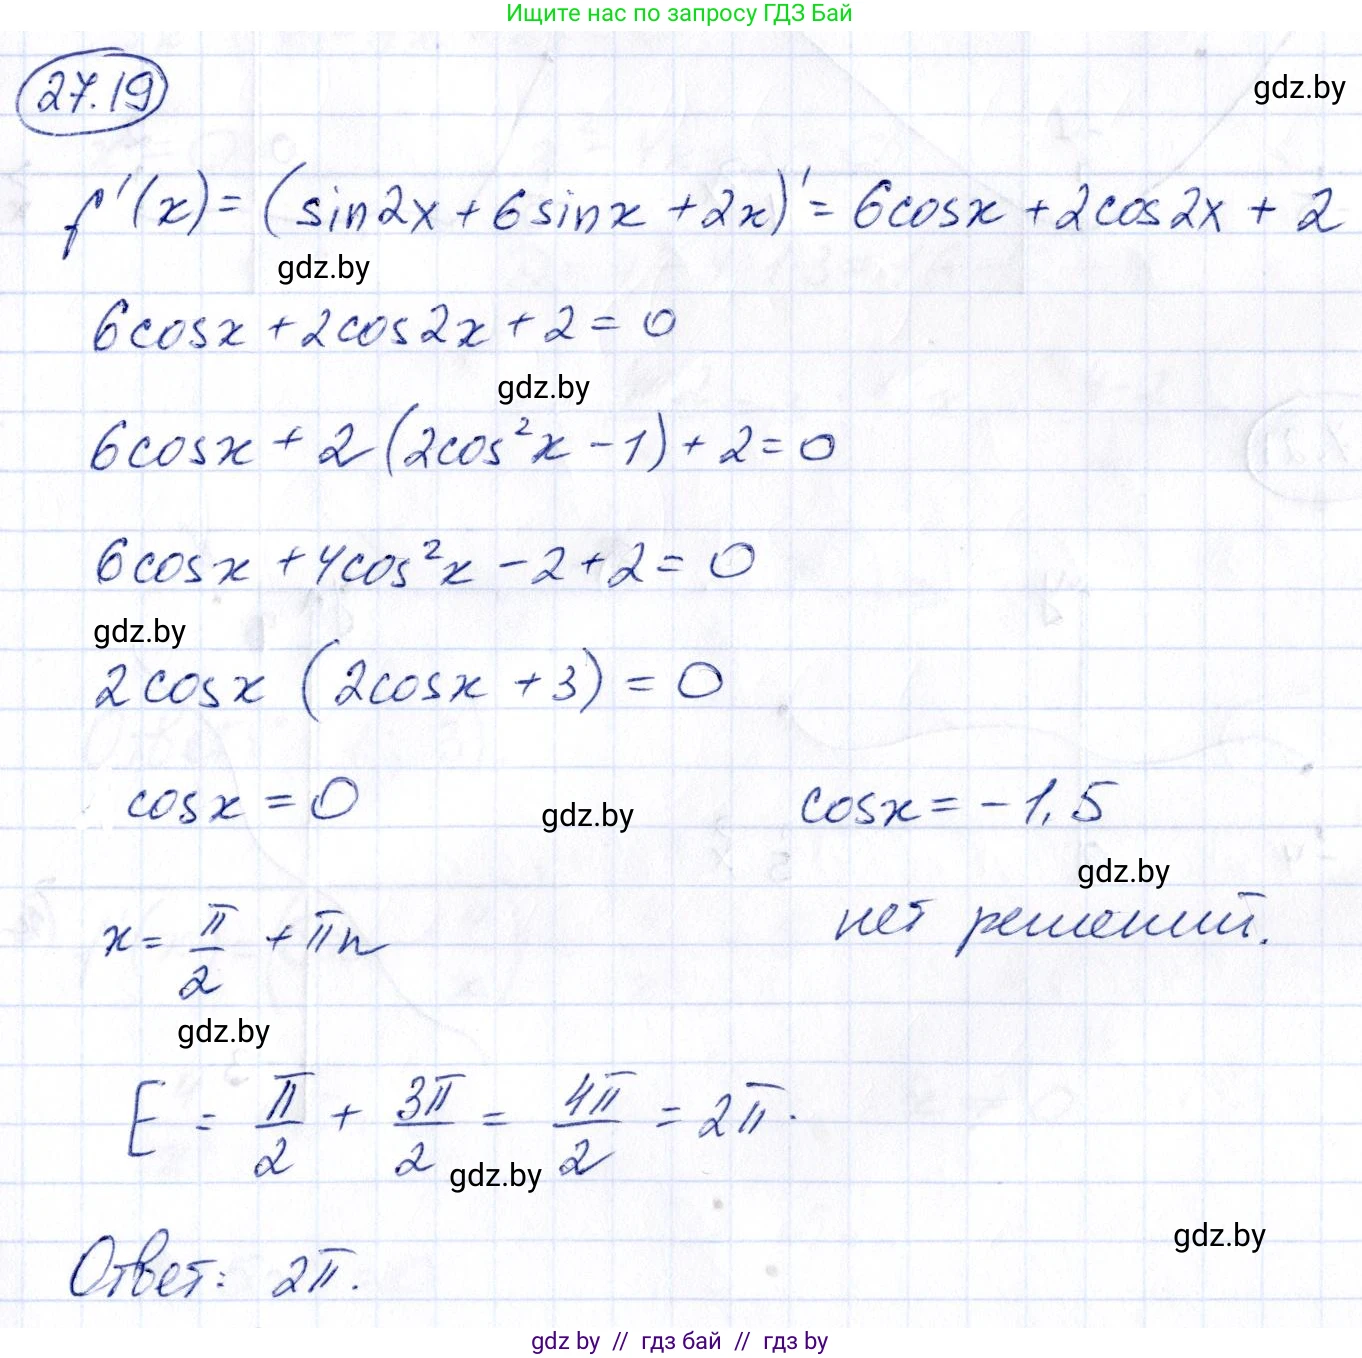 Ищите нас по запросу ГДЗ Бай
27.19
gdz.by
f'(x) = (sin2x + 6sinx + 2x)' = 6cosx + 2cos2x + 2
gdz.by
6cosx + 2cos2x + 2 = 0
gdz.by
6cosx + 2(2cos²x - 1) + 2 = 0
6cosx + 4cos²x - 2 + 2 = 0
gdz.by
2cosx (2cosx + 3) = 0
cosx = 0 gdz.by cosx = -1,5
gdz.by
x = π/2 + πn нет решений.
gdz.by
Σ = π/2 + 3π/2 = 4π/2 = 2π.
gdz.by
gdz.by
Ответ: 2π.
gdz by // гдз бай // gdz by